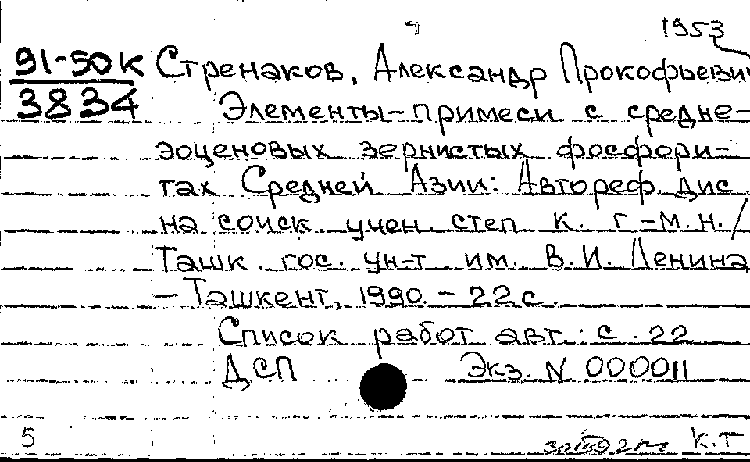 1953
91-50к Стренаков, Александр Прокофьеви
3834 Элементы-примеси с средне-
эоценовых зернистых фосфори-
тах Средней Азии: Автореф. дис
на соиск. учен. степ к. г-м.н./
Ташк. гос. ун-т им. В.И. Ленина
- Ташкент, 1990. - 22 с.
Список работ авт.: с. 22
ДСП Экз. N 000011
5 К.Т